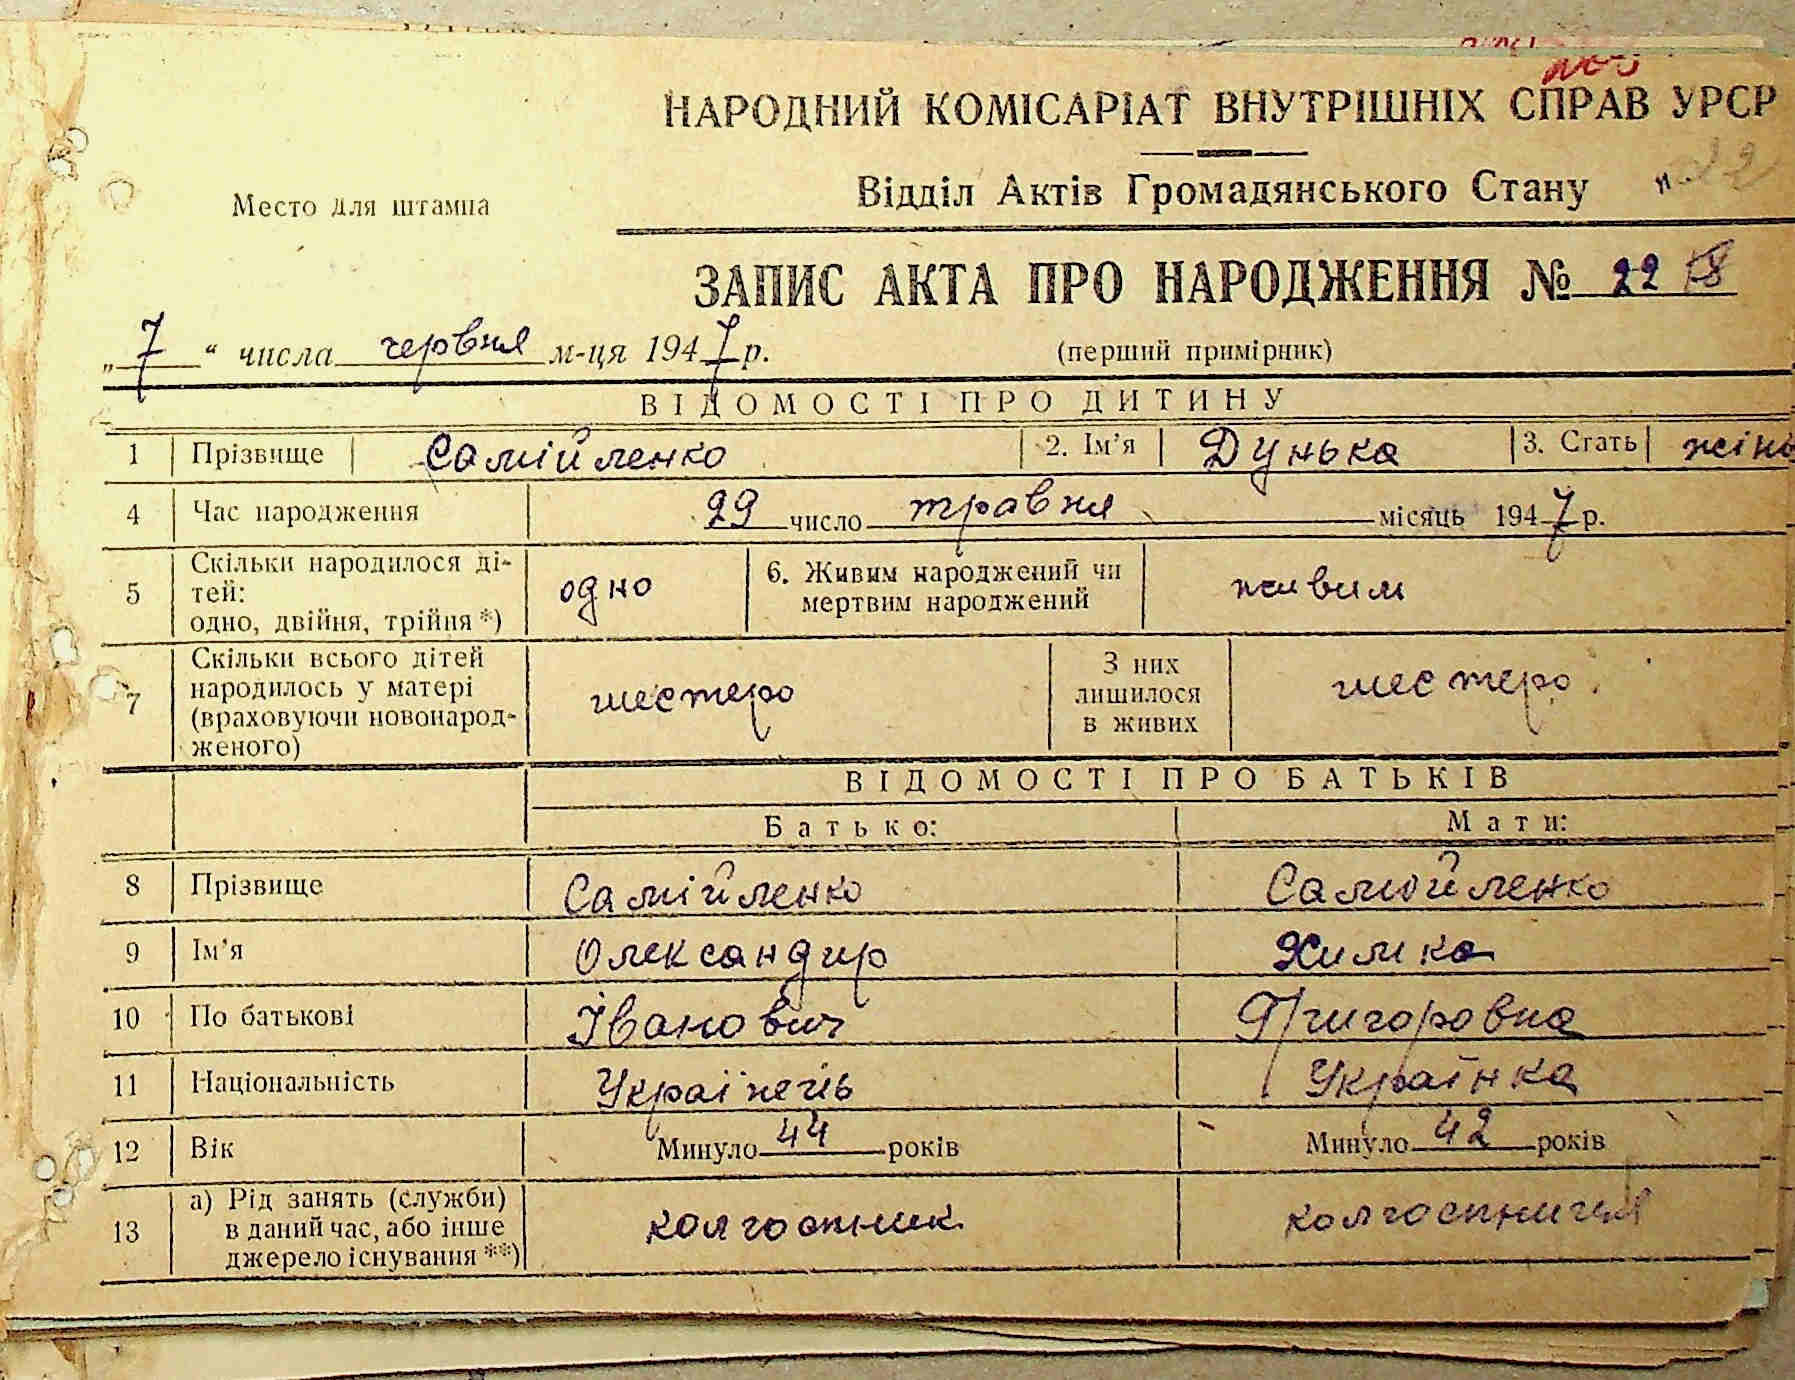 НАРОДНИЙ КОМІСАРІАТ ВНУТРІШНІХ СПРАВ УРСР
Место для штампа
Відділ Актів Громадянського Стану
22
ЗАПИС АКТА ПРО НАРОДЖЕННЯ № 22
„7“ числа червня м-ця 1947 р.
(перший примірник)
ВІДОМОСТІ ПРО ДИТИНУ
1 Прізвище Самійленко 2. Ім’я Дунька 3. Стать жінь
4 Час народження 29 число травня місяць 1947 р.
5 Скільки народилося ді-
тей:
одно, двійня, трійня *)
одно
6. Живим народжений чи
мертвим народжений
живим
7 Скільки всього дітей
народилось у матері
(враховуючи новонарод-
женого)
шестеро
З них
лишилося
в живих
шестеро
ВІДОМОСТІ ПРО БАТЬКІВ
Батько: Мати:
8 Прізвище Самійленко Самойленко
9 Ім’я Олександир Химка
10 По батькові Іванович Григоровна
11 Національність Українець Українка
12 Вік Минуло 44 років Минуло 42 років
13 а) Рід занять (служби)
в даний час, або інше
джерело існування **)
колгоспник колгоспниця